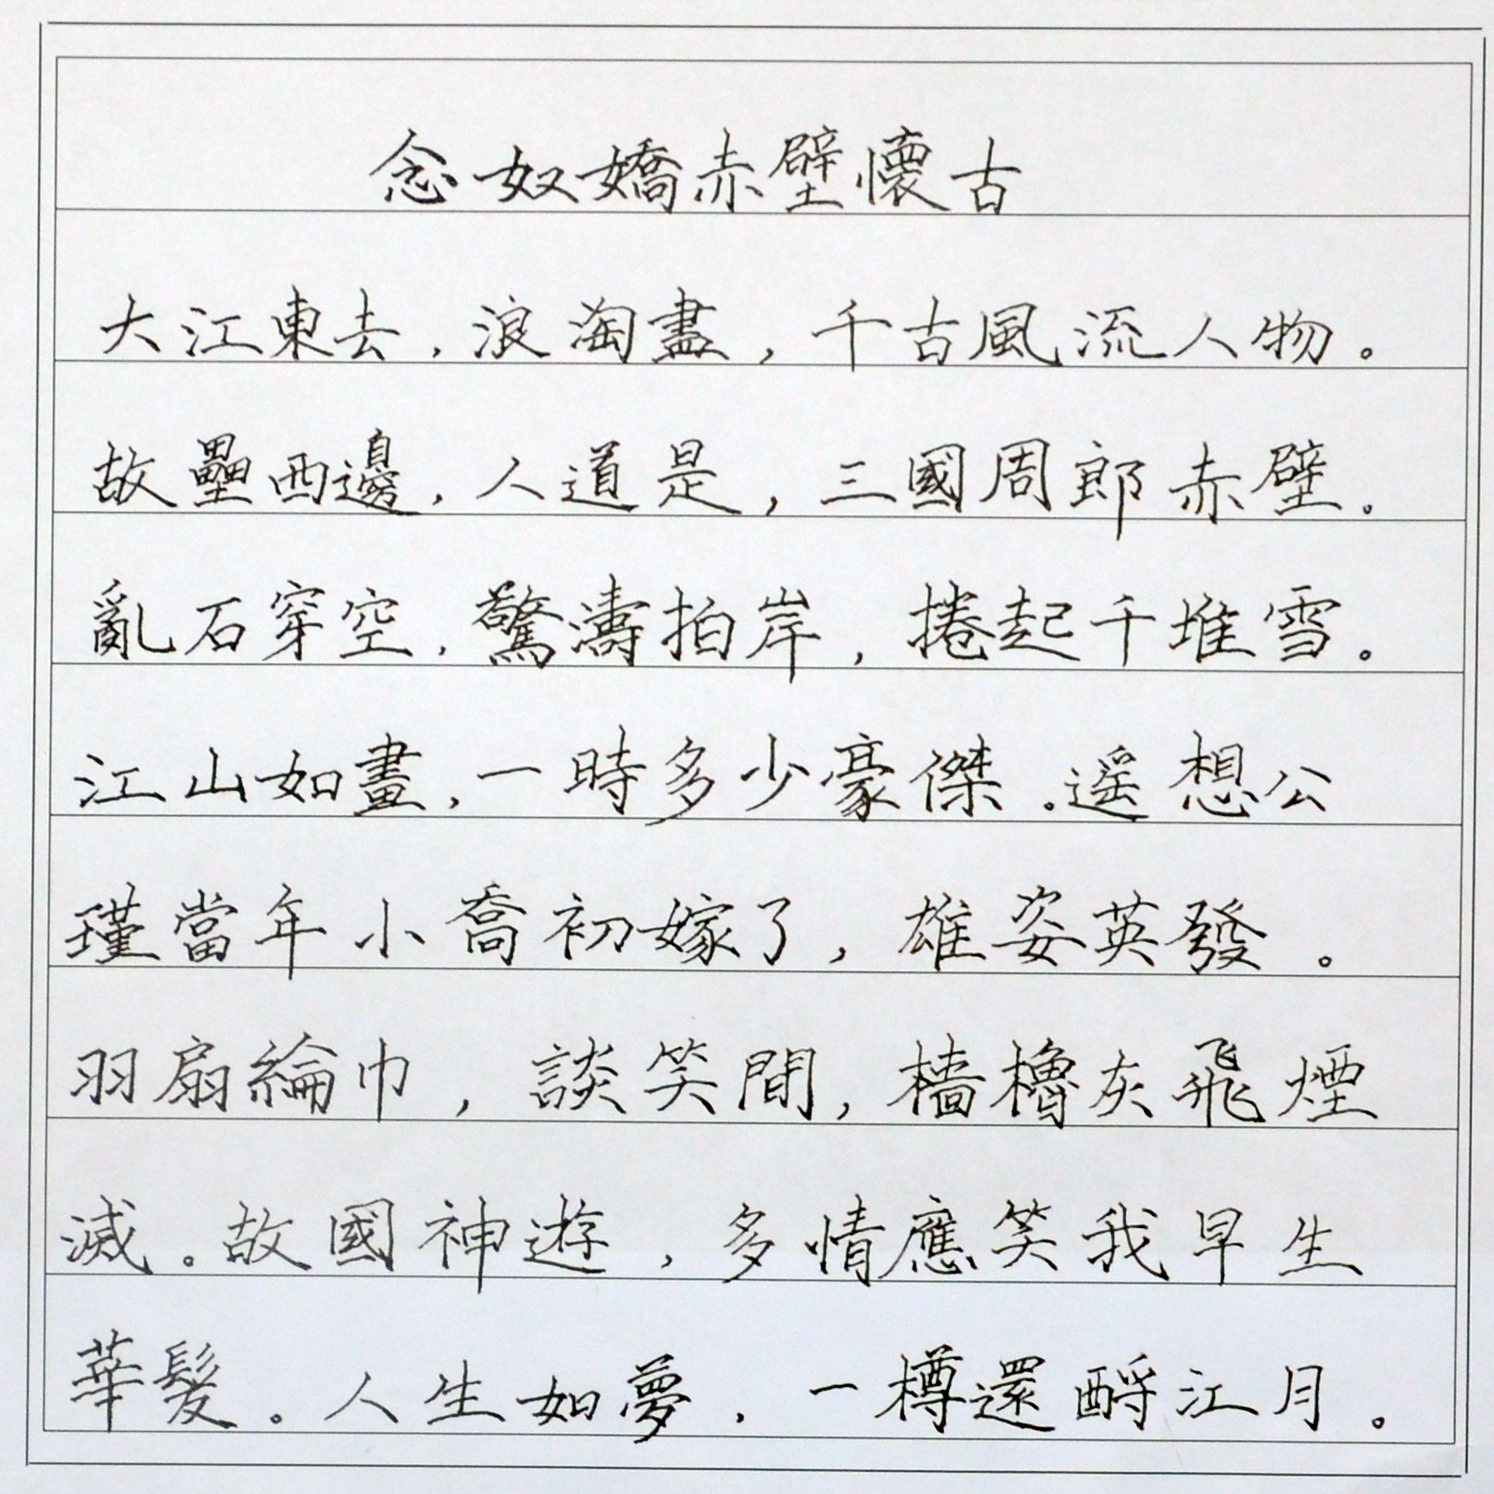 念奴嬌赤壁懷古
大江東去，浪淘盡，千古風流人物。
故壘西邊，人道是，三國周郎赤壁。
亂石穿空，驚濤拍岸，捲起千堆雪。
江山如畫，一時多少豪傑。遥想公
瑾當年小喬初嫁了，雄姿英發。
羽扇綸巾，談笑間，檣櫓灰飛煙
滅。故國神遊，多情應笑我早生
華髮。人生如夢，一樽還酹江月。